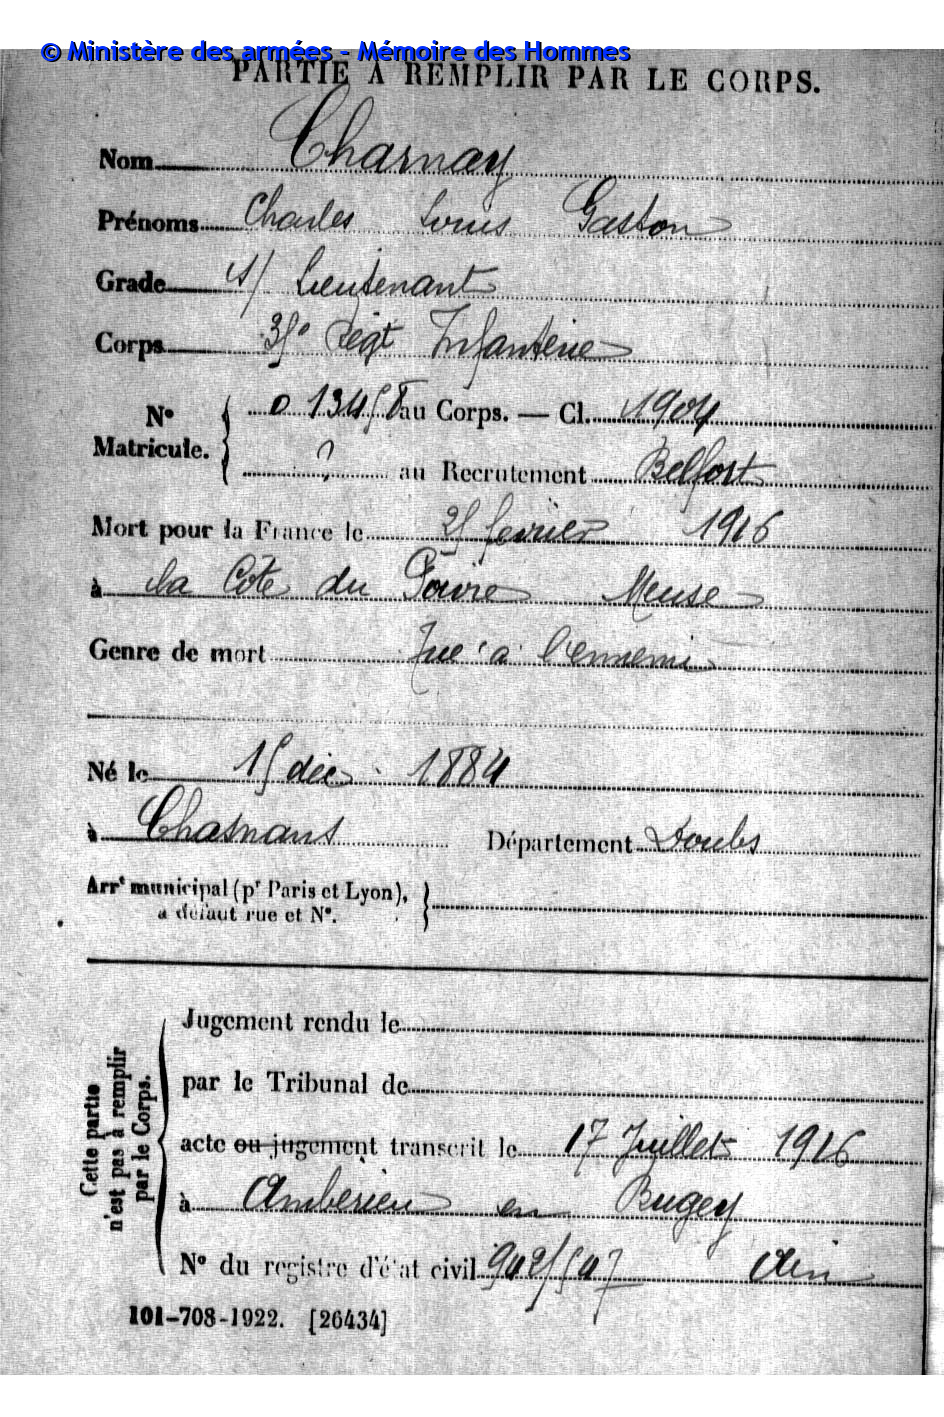 © Ministère des armées - Mémoire des Hommes
PARTIE À REMPLIR PAR LE CORPS.
Nom Charnay
Prénoms Charles Louis Gaston
Grade S/ Lieutenant
Corps 35e Régt Infanterie
N° Matricule. { 0 13458 au Corps. — Cl. 1904
? au Recrutement Belfort
Mort pour la France le 25 février 1916
à la Côte du Poivre Meuse
Genre de mort Tué à l'ennemi
Né le 15 déc 1884
à Chasnans Département Doubs
Arrt municipal (pr Paris et Lyon), }
à défaut rue et N°.
Cette partie n'est pas à remplir par le Corps.
Jugement rendu le
par le Tribunal de
acte ou jugement transcrit le 17 Juillet 1916
à Ambérieu en Bugey
N° du registre d'état civil 942/547 Ain
101-708-1922. [26434]